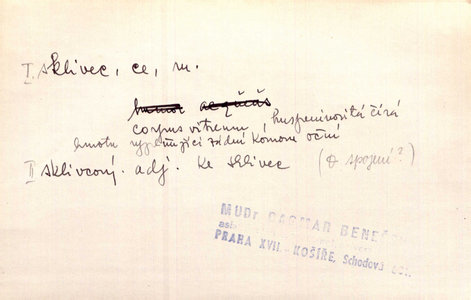 I. sklivec, ce, m.
humor aequeus
corpus vitreum huspeninovitá čirá
hmota vyplňující zadní komoru oční
II sklivcový. adj. ke sklivec (ø spojení?)
MUDr DAGMAR BENE
PRAHA XVII. - KOŠÍŘE, Schodová